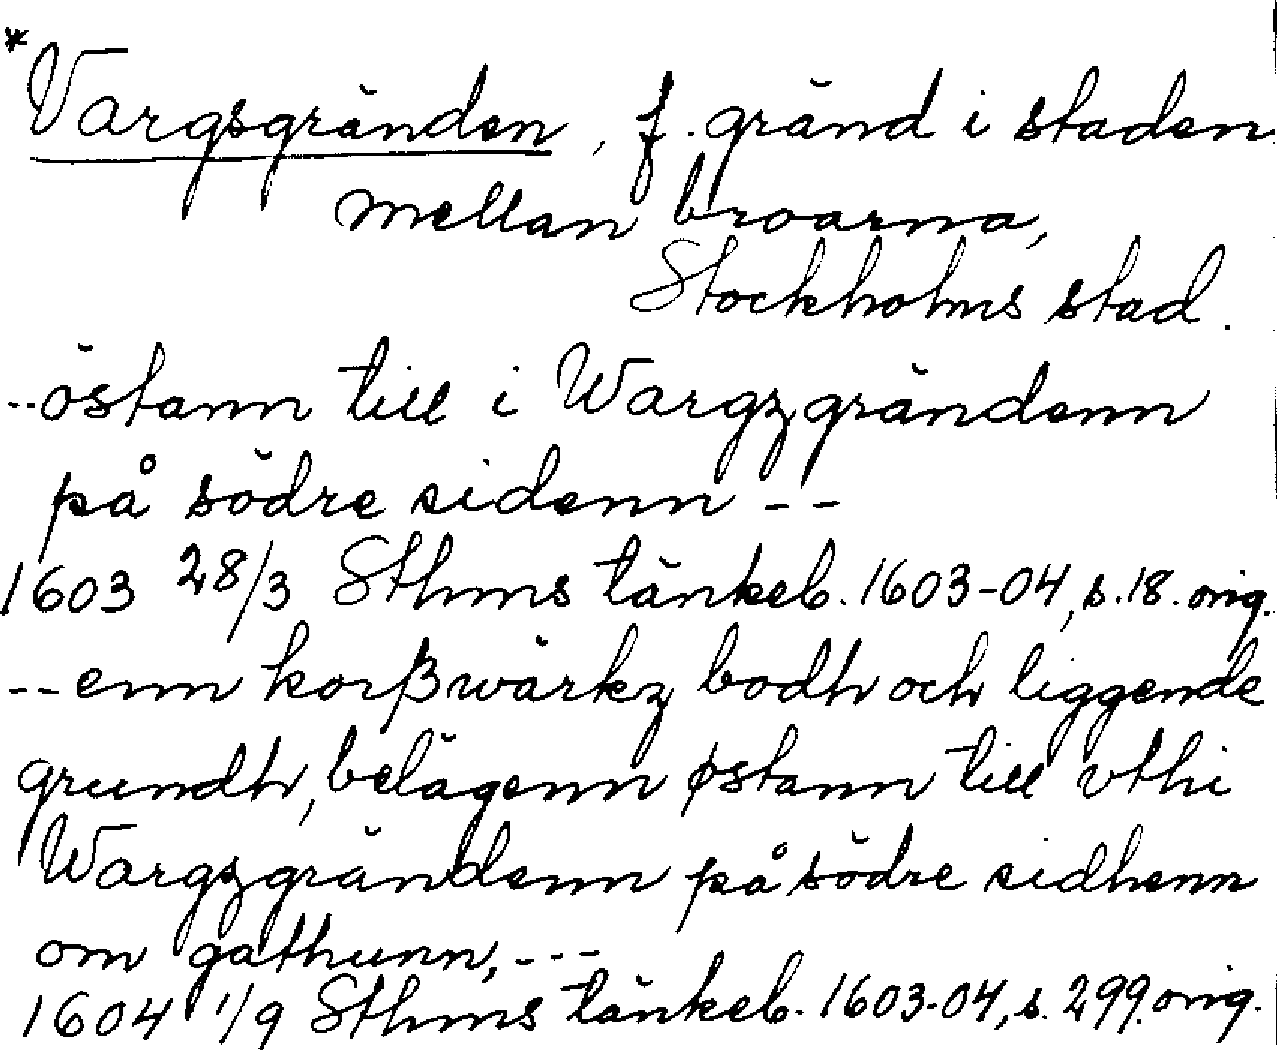 *Vargsgränden, f. gränd i staden
mellan broarna,
Stockholms stad.
--östann till i Wargzgrändenn
på södre sidenn --
1603 28/3 Sthms tänkeb. 1603-04, s. 18. orig.
--enn korßwärkz bodh och liggende
grundh, belägenn østann till vthi
Wargzgrändenn på södre sidhenn
om gathunn, ---
1604 1/9 Sthms tänkeb. 1603-04, s. 299. orig.